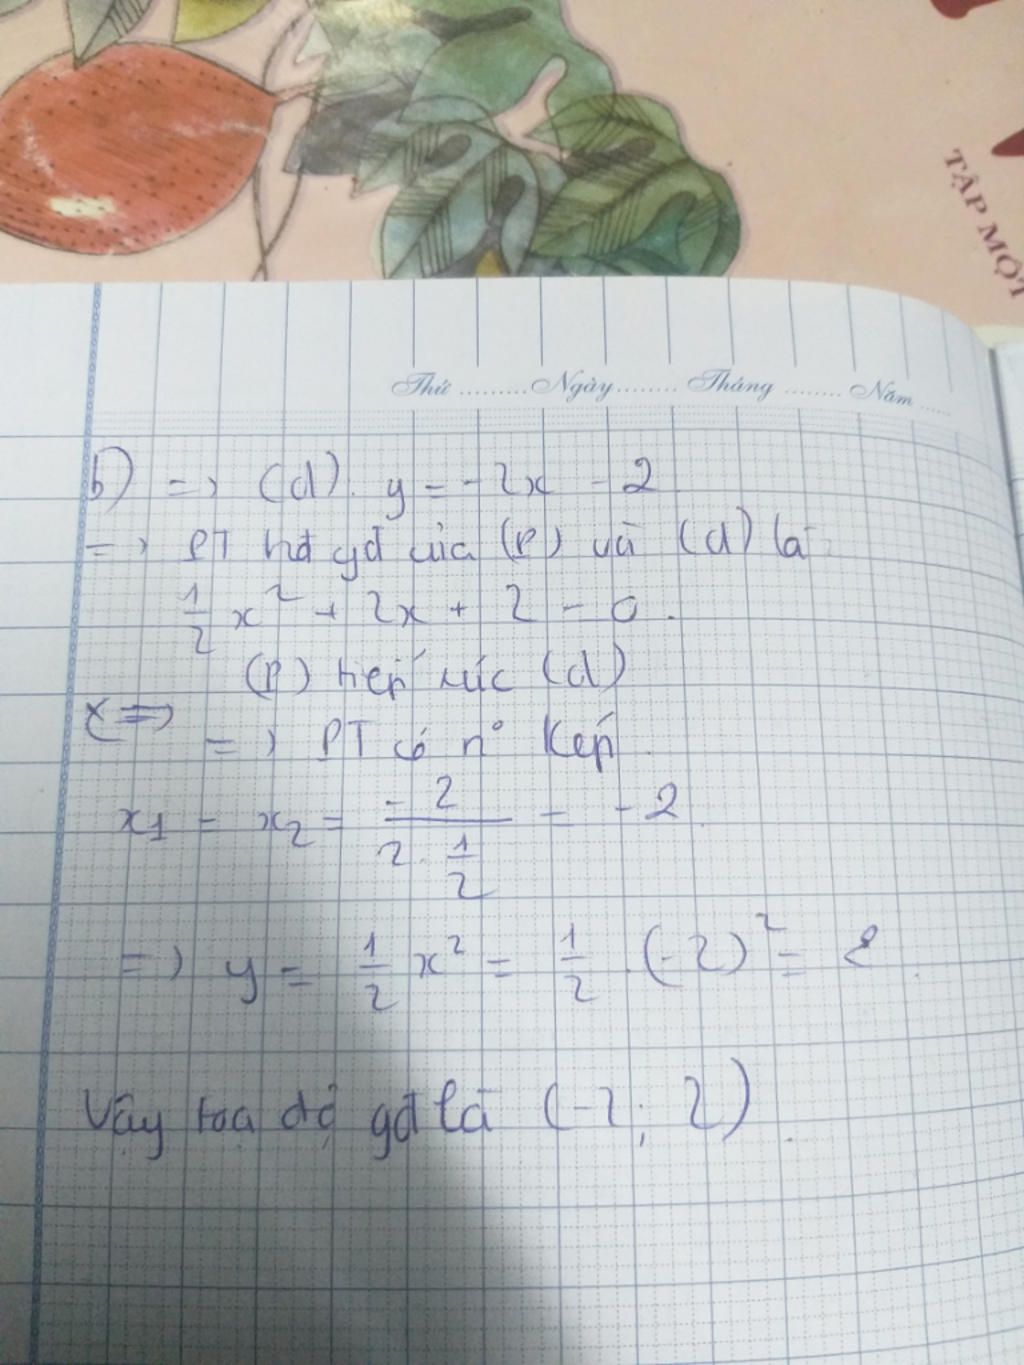 TẬP MỘT
Thứ ......... Ngày ........ Tháng ........ Năm .....
b) => (d). y = -2x - 2
=> PT hđ gđ của (P) và (d) là:
1/2 x² + 2x + 2 = 0.
(P) tiếp xúc (d)
=> PT có n° kép.
x1 = x2 = -2 / (2 . 1/2) = -2.
=> y = 1/2 x² = 1/2 . (-2)² = 2.
Vậy toạ độ gđ là (-2; 2).